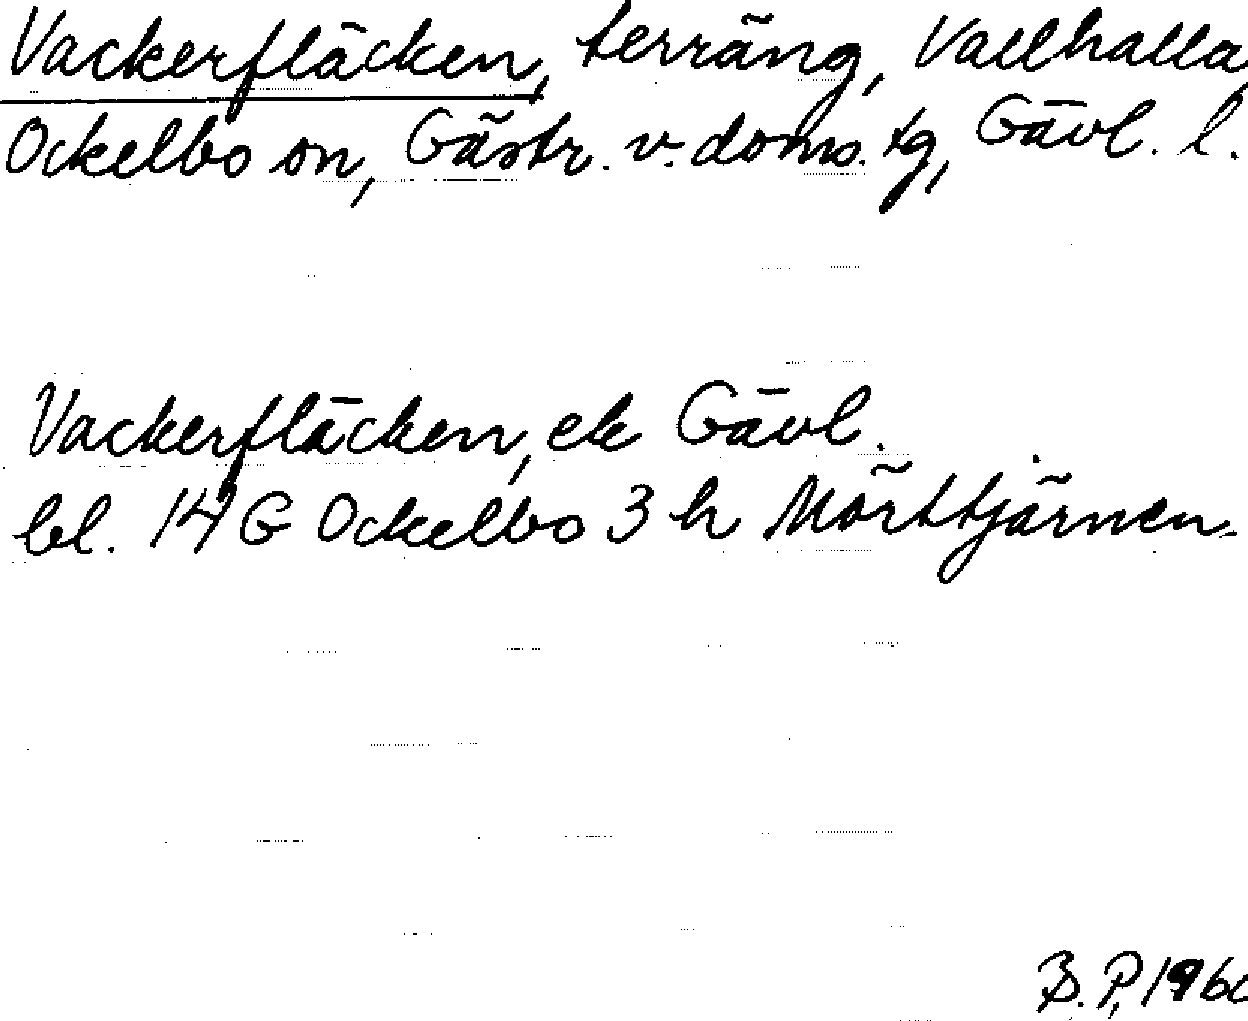 Vackerfläcken, terräng, Vallhalla,
Ockelbo sn, Gästr. v. doms. tg, Gävl. l.
Vackerfläcken, ek Gävl.
bl. 14 G Ockelbo 3 h Mörttjärnen.
B.P. 1960